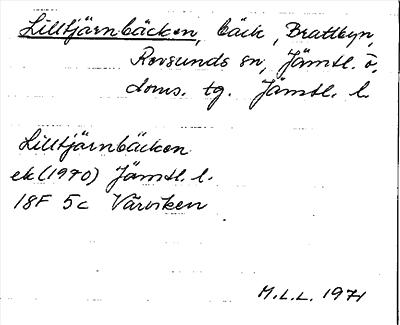 Lilltjärnbäcken, bäck, Brattbyn,
Revsunds sn, Jämtl. ö.
doms. tg. Jämtl. l.
Lilltjärnbäcken
ek (1970) Jämtl. l.
18F 5c Varviken
M.L.L. 1971